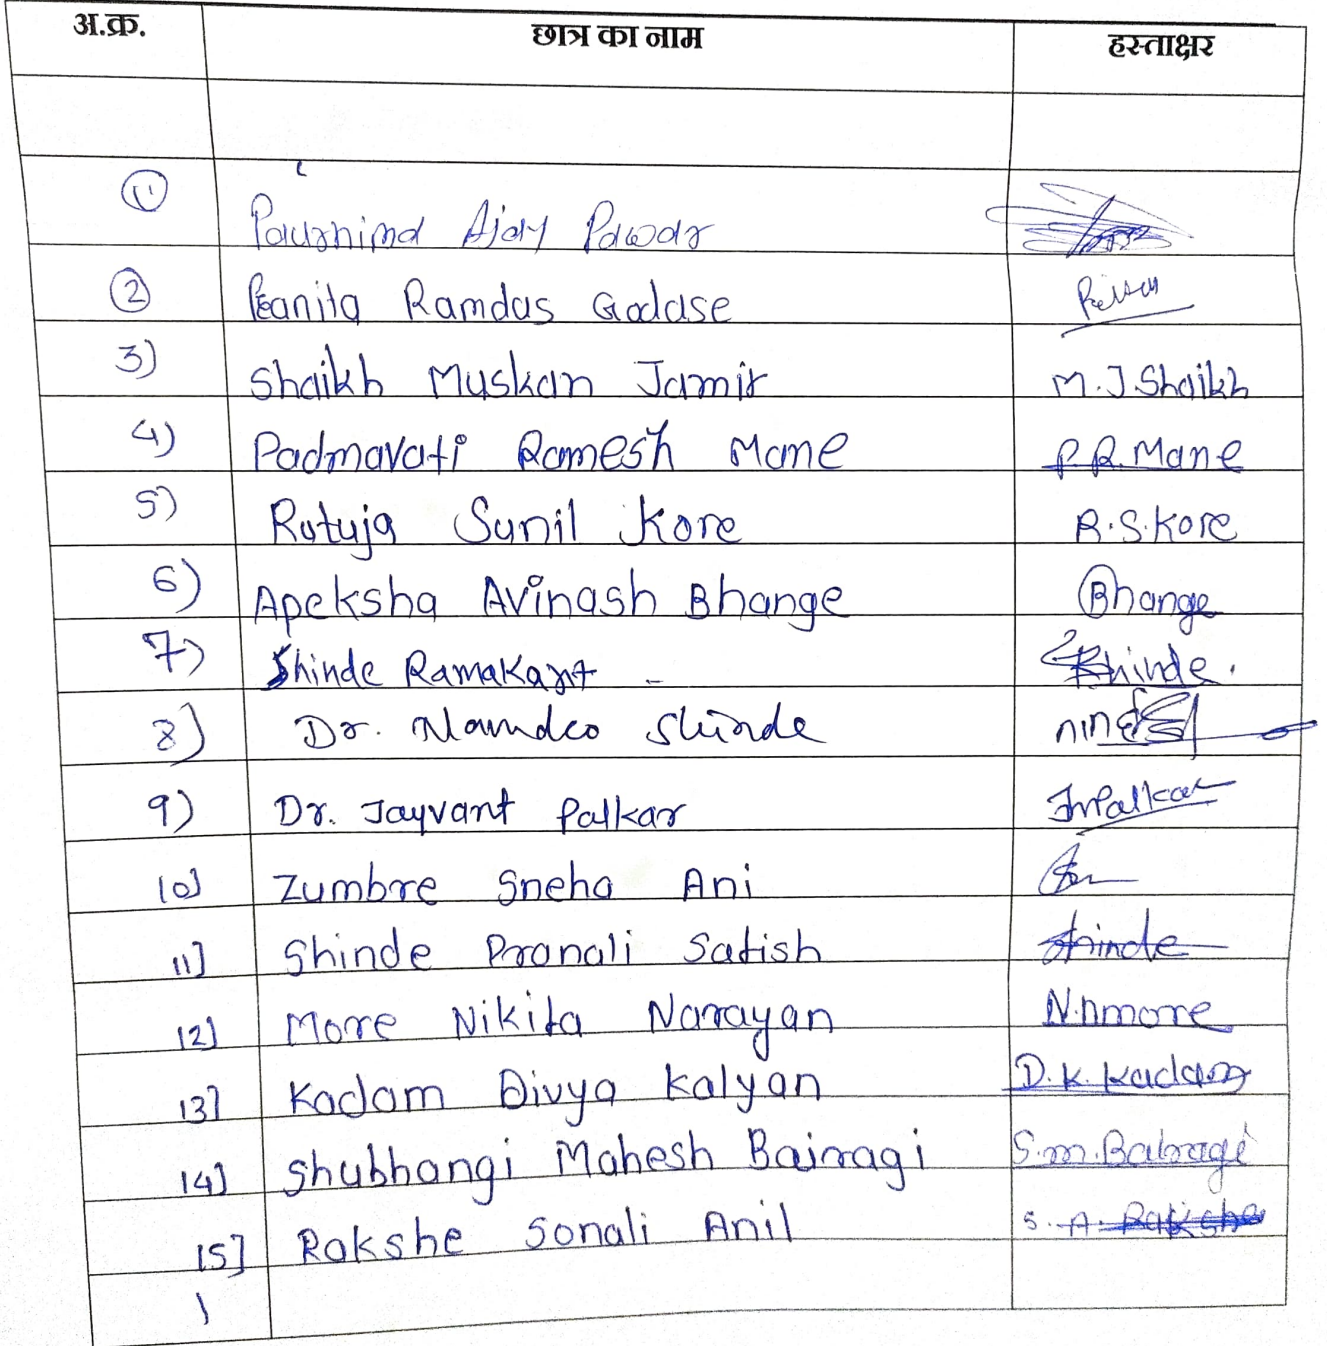 अ.क्र. छात्र का नाम हस्ताक्षर
1 Paurnima Ajay Pawar
2 Ranita Ramdas Godase
3) Shaikh Muskan Jamir M.J.Shaikh
4) Padmavati Ramesh Mane P.R.Mane
5) Rutuja Sunil Kore R.S.Kore
6) Apeksha Avinash Bhange Bhange
7) Shinde Ramakant - Shinde.
8) Dr. Namdeo Shinde
9) Dr. Jayvant Palkar Palkar
10] Zumbre Sneha Ani
11] Shinde Pranali Satish Shinde
12] More Nikita Narayan N.n more
13] Kadam Divya Kalyan D.K. Kadam
14] Shubhangi Mahesh Bairagi S.m.Bairagi
15] Rakshe Sonali Anil S. A. Rakshe